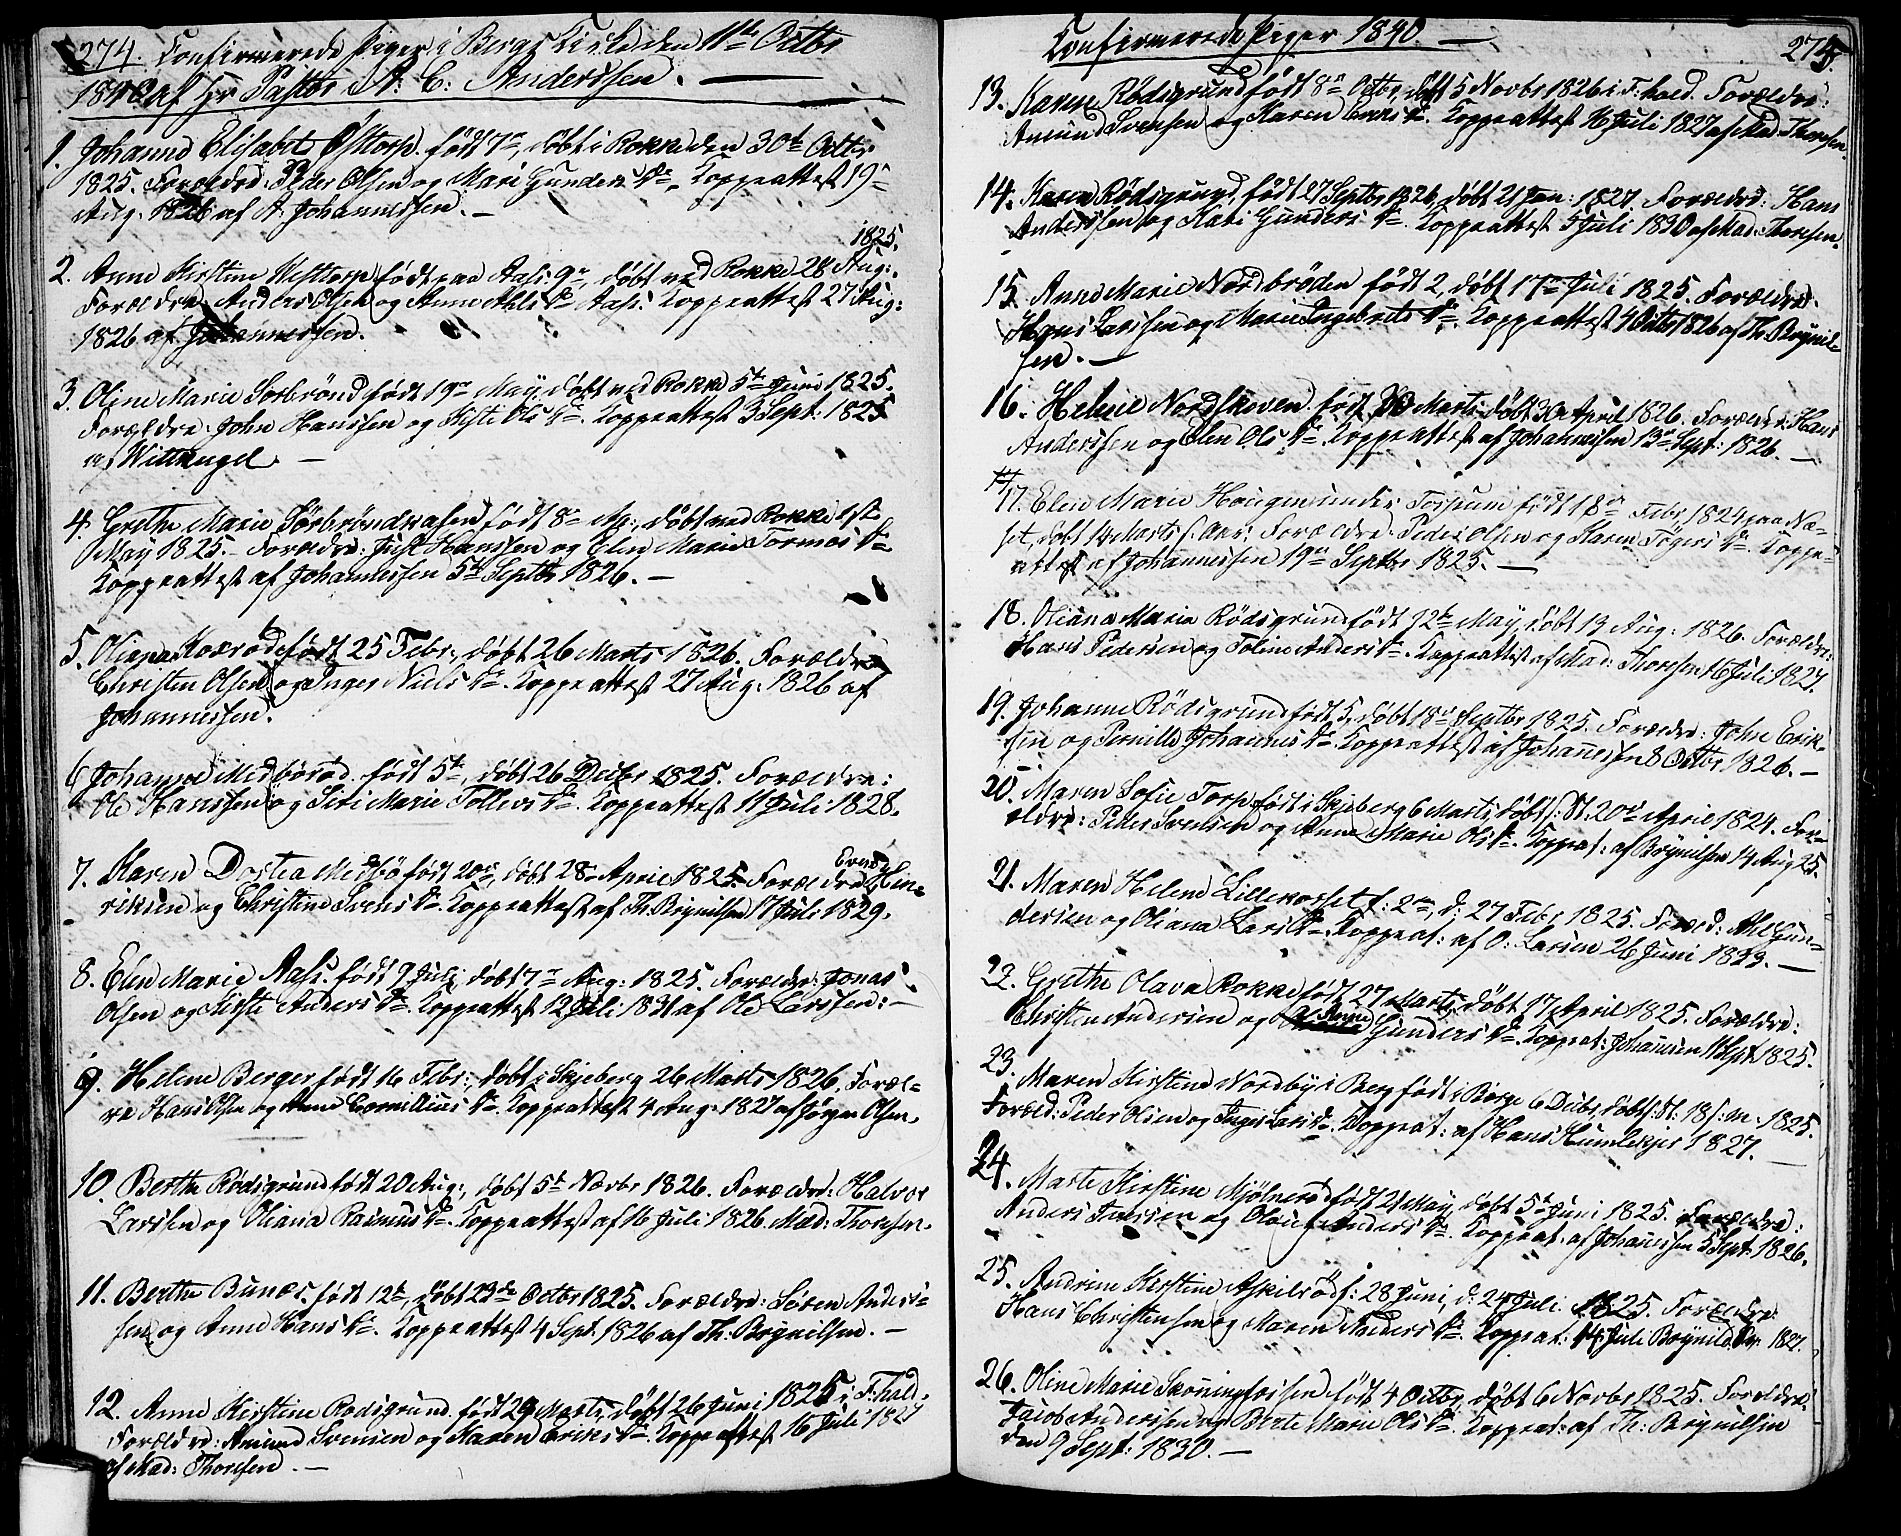 274. Confirmerede Piger i Bergs Kirke den 11te Octbr
1840 af Hr Pastor A: C: Anderssen.
1. Johanne Elisabet Östorp. født 7de, döbt i Rokke den 30te Octbr
1825. Forældre: Peder Olsen og Mari Gunders Dr. Koppeattest 19de
Aug: 1826 af A. Johannessen. —
1825.
2. Anne Kirstine Westorp født paa Aas: 9de, döbt ved Rokke 28 Aug:
Forældre Anders Olsen og Anne Ahls Dr Aas. Koppeattest 27 Aug:
1826 af Johannessen.
3. Oline Marie Sørbrönd født 19de May, døbt ved Rokke 5te Juni 1825.
Forældre: John Hanssen og Kiste Ols Dr. Koppeattest 3 Sept: 1825
af Wittkugel. —
4. Grethe Marie Sörbröndsaasen født 8de Ap:, döbt ved Rokke 1ste
May 1825. Forældre: Just Hanssen og Elen Marie Tormos Dr
Koppeattest af Johannessen 5te Septbr 1826. —
5. Oliana født 25 Febr:, döbt 26 Marts 1826. Forældre
Christen Olsen og Inger Niels Dr. Koppeattest 27 Aug: 1826 af
Johannessen.
6 Johanne Medbörød. født 5te, döbt 26 Decbr 1825. Forældre:
Ole Hanssen og Siri Marie Tollevs Dr. Koppeattest 11 Juli 1828.
7. Karen Dortea Medbö født 20de, döbt 28de April 1825. Forældre Hin-
riksen og Christine Svens Dr. Koppeattest af Th. Brynilsen 17 Juli 1829.
8. Elen Marie Aas. født 9 Juli, döbt 7de Aug: 1825. Forældre: Jonas
Olsen og Kirsti Anders Dr. Koppeattest 12 Juli 1831 af Ole Larssen: —
9. Helene Berger født 16 Febr:, døbt i Skjeberg 26 Marts 1826. Foræl-
re Hans Olsen og Anne Cornillius Dr. Koppeattest 4 Aug: 1827 af Jörgen Olsen.
10. Berthe Rödsgrund født 20 Aug:, döbt 5te Novbr 1826. Forældre: Halvor
Larssen og Oliana Rasmus Dr. Koppeattest af 16 Juli 1826. Mad. Thoresen.
11. Berthe Bunæs. født 12te, döbt 23de Octbr 1825. Forældre: Sören Anders-
sen og Anne Hans Dr. Koppeattest 4 Sept. 1826 af Th: Brynilsen. —
12. Anne Kirstine Rødsgrund. født 29 Marts, døbt 26 Juni 1825 i F:hald.
Forældre: Amund Svensen og Karen Eriks Dr. Koppeattest 16 Juli 1827
af Mad: Thoresen. —
Confirmerede Piger 1840. —
275.
13. Karen Rödsgrund født 8de Octbr, döbt 5 Novbr 1826 i F:hald. Forældre:
Amund Svensen og Karen Eriks Dr. Koppeattest 16 Juli 1827 af Mad. Thoresen.
14. Karen Rödsgrund. født 27 Septbr 1826, døbt 21 Jan: 1827. Forældre: Hans
Anderssen og Kari Gunders Dr. Koppeattest 5 Juli 1830 af Mad. Thoresen.
15. Anne Marie Nordbröden født 2, døbt 17de Juli 1825. Forældre.
Hans Larssen og Marie Ingebrets Dr. Koppeattest 4 Octbr 1826 af Th. Brynil-
sen. —
16. Helene Nordskoven. født Marts, döbt 30 April 1826. Forældre: Hans
Anderssen og Elen Ols Dr. Koppeattest af Johannessen 13de Sept: 1826. —
17. Elen Marie Haugen under Torpum født 18de Febr, 1824 paa Næ-
set, döbt 14 Marts s: Aar. Forældre: Peder Olsen og Karen Togers Dr. Koppe-
attest af Johannessen 19de Septbr 1825. —
18. Oliana Maria Rödsgrund født 12te May, döbt 13 Aug: 1826. Forældre:
Hans Pedersen og Toline Anders Dr. Koppeattest af Mad: Thoresen 16 Juli 1827.
19. Johanne Rödsgrund født 5, döbt 18de Septbr 1825. Forældre: John Erik-
sen og Pernille Johannes Dr. Koppeattest af Johanessen 8 Octbr 1826. —
20. Maren Sofie Torp født i Skjeberg 6 Marts, döbt s: St. 20de April 1824. For-
ældre: Peder Svensen og Anne Marie Ols Dr. Koppeat: af Brynilsen 14 Aug 25.
21. Maren Helene f. 2den, d: 27 Febr 1825. Foræld: Ahl Gun-
dersen og Oliana Lars Dr. Koppeat: af O: Larsen 26 Juni 1833. —
22. Grethe Olava Rokke født 27 Marts, døbt 17 April 1825. Forældre:
Christen Andersen og Anne Gunders Dr. Koppeat: Johannsen 11 Sept. 1825.
23. Maren Kirstine Nordby i Berg født i Börge 6 Decbr, döbt s: St: 18 s: m: 1825.
Foræld: Peder Olsen og Inger Lars Dr. Koppeat: af Hans Humlekjer 1827. —
24. Marte Kirstine Mjölneröd født 21 May, döbt 5te Juni 1825. Forældre:
Anders Jansen og Oloug Anders Dr. Koppeat: af Johanessen 5 Sept: 1826.
25. Andrine Kirstine Askilsröd f: 28 Juni, d: 24 Juli 1825. Forældre:
Hans Christensen og Maren Anders Dr. Koppeat: 14 Juli Brynildsen 1827.
26. Oline Marie Skonningfossen født 4 Octbr, döbt 6 Novbr 1825. Forældre:
Jacob Anderssen og Berte Marie Ols Dr. Koppeat: af Th: Brynilsen
den 9 Sept: 1830. —